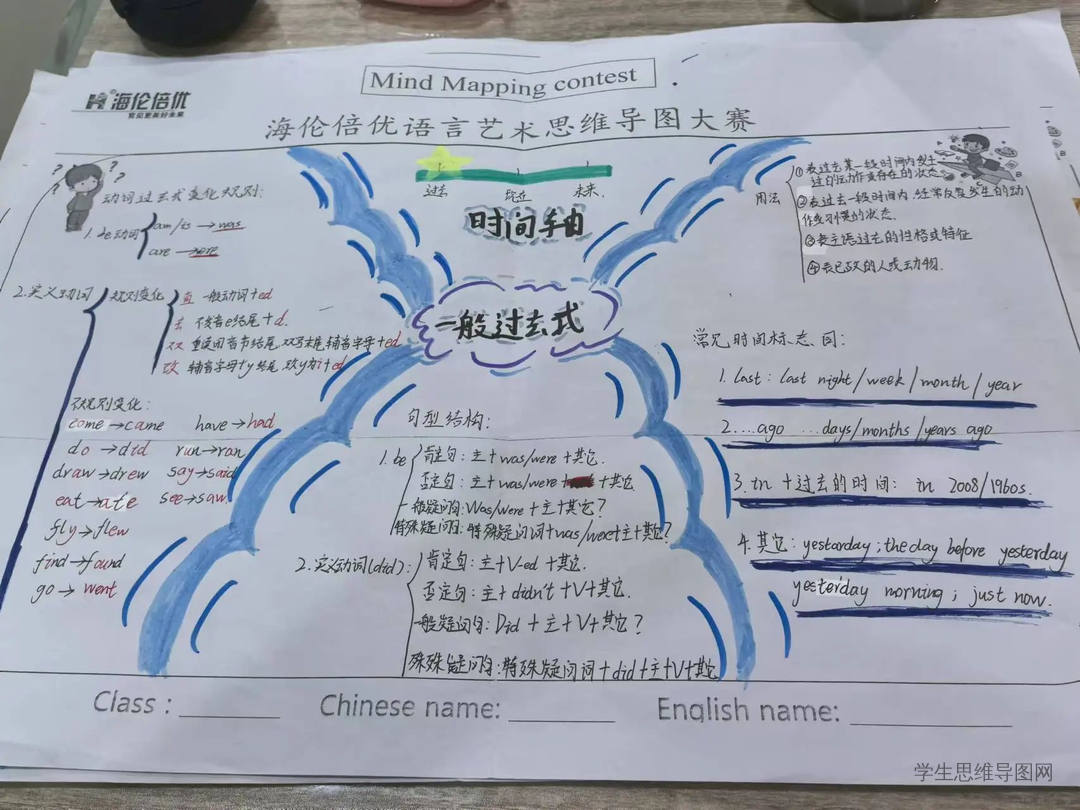 Mind Mapping contest
海伦倍优
海伦倍优语言艺术思维导图大赛
动词过去式变化规则:
1. be动词
am/is → was
are → were
2.实义动词
规则变化
直 一般动词+ed
去 不发音e结尾+d.
双 重读闭音节结尾,双写末尾辅音字母+ed
改 辅音字母+y结尾,改y为i+ed
不规则变化:
come → came have → had
do → did run → ran
draw → drew say → said
eat → ate see → saw
fly → flew
find → found
go → went
过去 现在 未来
时间轴
一般过去式
句型结构:
1. be
肯定句: 主+was/were+其它.
否定句: 主+was/were+ +其它
一般疑问句: Was/were+主+其它?
特殊疑问句: 特殊疑问词+was/were+主+其它?
2.实义动词(did):
肯定句: 主+V-ed+其它.
否定句: 主+didn't+V+其它.
一般疑问句: Did+主+V+其它?
特殊疑问词+did+主+V+其它
用法
①表过去某一段时间内发生
过的动作或存在的状态
②表过去一段时间内,经常反复发生的动
作或习惯的状态.
③表主语过去的性格或特征
④表已故的人或动物.
常见时间标志词:
1. last: last night/week/month/year
2. ...ago ...days/months/years ago
3. in +过去的时间: in 2008/1960s.
4. 其它: yesterday; the day before yesterday
yesterday morning; just now.
Class : Chinese name: English name:
学生思维导图网